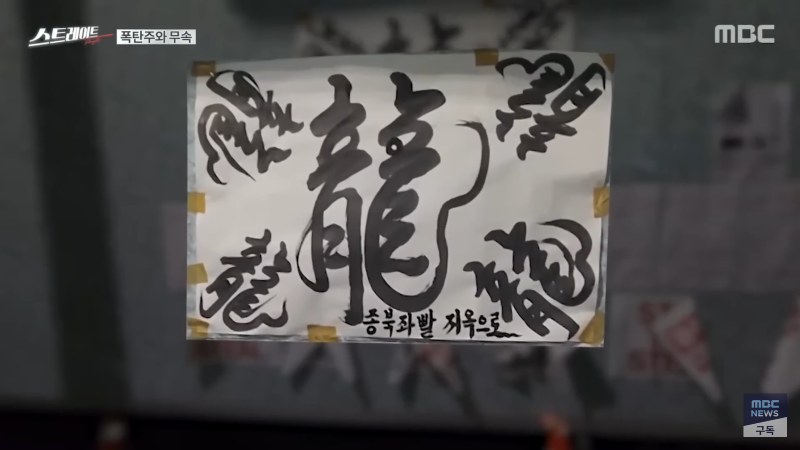 스트레이트
폭탄주와 무속
MBC
龍
龍
龍
龍
龍
종북좌빨 지옥으로
MBC
NEWS
구독